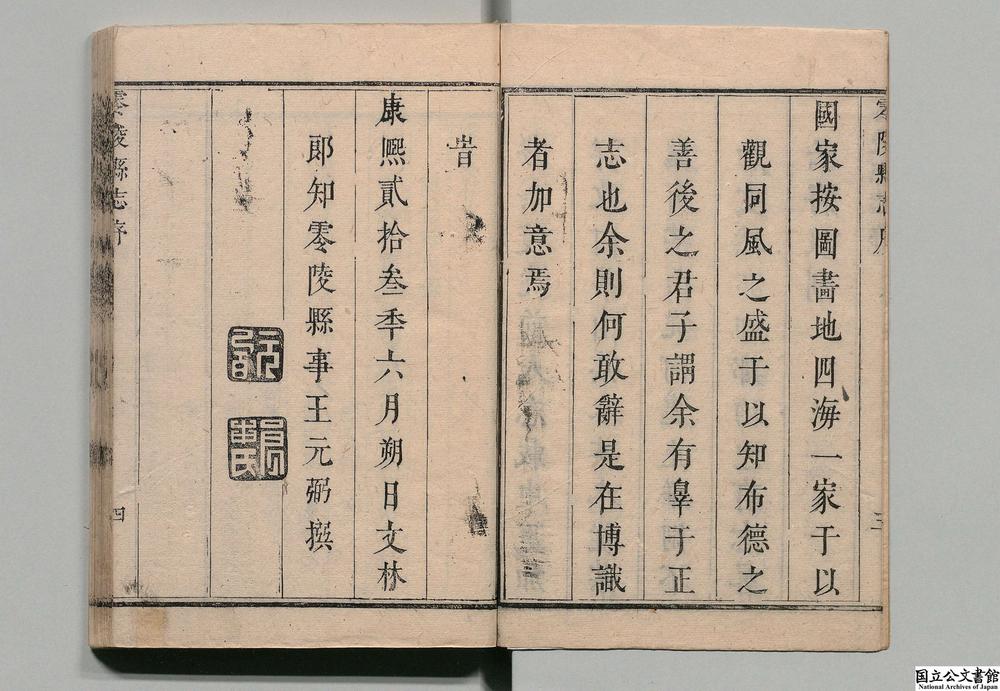 國家按圖畵地四海一家于以
觀同風之盛于以知布德之
善後之君子謂余有辠于正
志也余則何敢辭是在博識
者加意焉
旹
康熙貳拾叁秊六月朔日文林
郎知零陵縣事王元弼撰
零陵縣志序
四
国立公文書館
National Archives of Japan